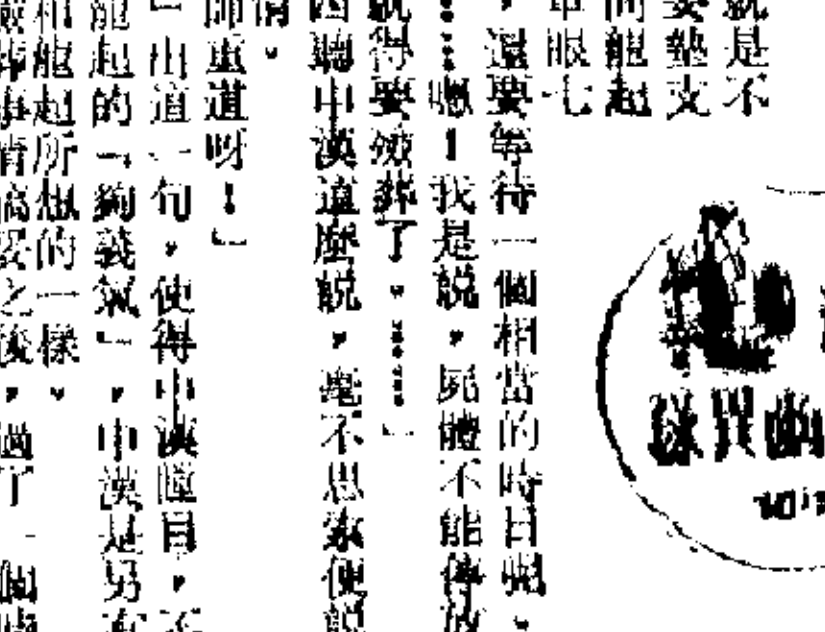 就是不
要墊支
問龍起
單眼七
，還要等待一個相當的時日呢，
……嗯！我是說，屍體不能停放
就得要殮葬了。……」
四聽中漢這麼說，毫不思索便說
情。
師重道呀！」
」出道一句，使得中漢瞠目，不
龍起的「夠義氣」，中漢是另有
和龍起所想的一樣。
殮葬事情搞妥之後，過了一個時